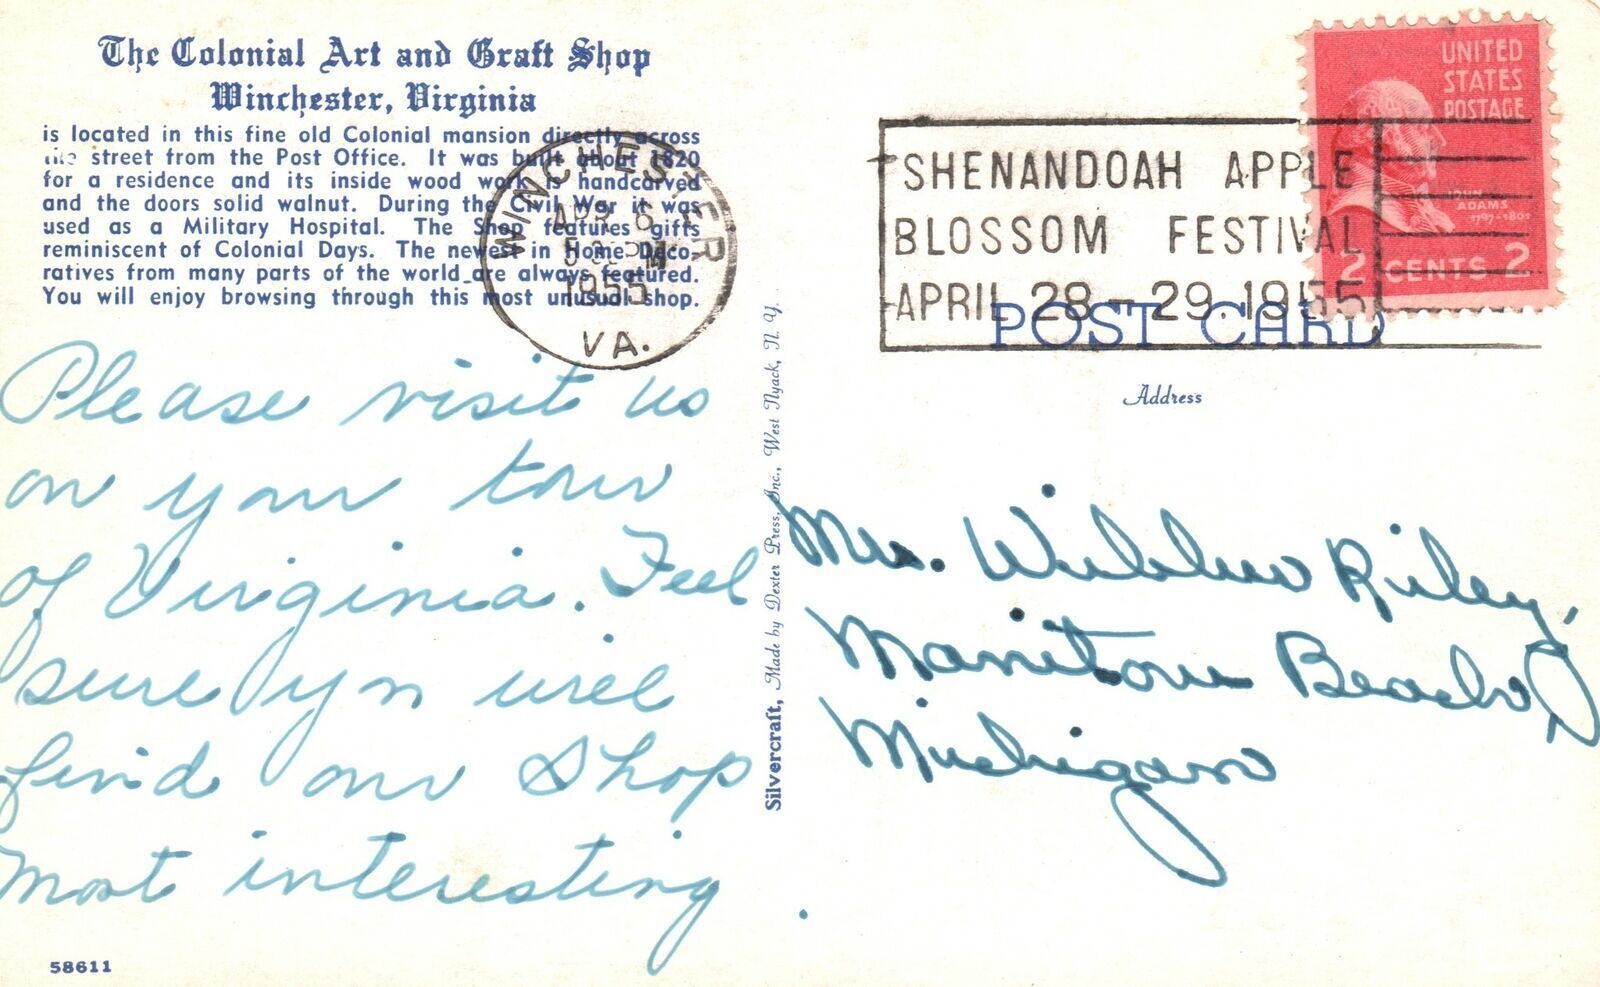 The Colonial Art and Craft Shop
Winchester, Virginia
is located in this fine old Colonial mansion directly across
the street from the Post Office. It was built about 1820
for a residence and its inside wood work is handcarved
and the doors solid walnut. During the Civil War it was
used as a Military Hospital. The Shop features gifts
reminiscent of Colonial Days. The newest in Home Deco-
ratives from many parts of the world are always featured.
You will enjoy browsing through this most unusual shop.
WINCHESTER
APR 6
1955
VA.
Please visit us
on your tour
of Virginia. Feel
sure you will
find our Shop
most interesting
58611
Silvercraft, Made by Dexter Press, Inc., West Nyack, N. Y.
SHENANDOAH APPLE
BLOSSOM FESTIVAL
APRIL 28-29.1955
UNITED
STATES
POSTAGE
JOHN
ADAMS
1797-1801
2 CENTS 2
POST CARD
Address
Riley,
Manitou Beach,
Michigan